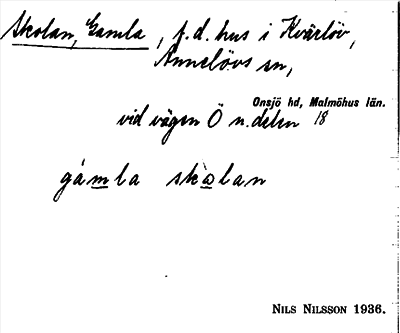 Skolan, Gamla, f.d. hus i Kvärlöv,
Annelövs sn,
Onsjö hd, Malmöhus län.
vid vägen Ö n. delen 18
gámla skꙍlan
NILS NILSSON 1936.